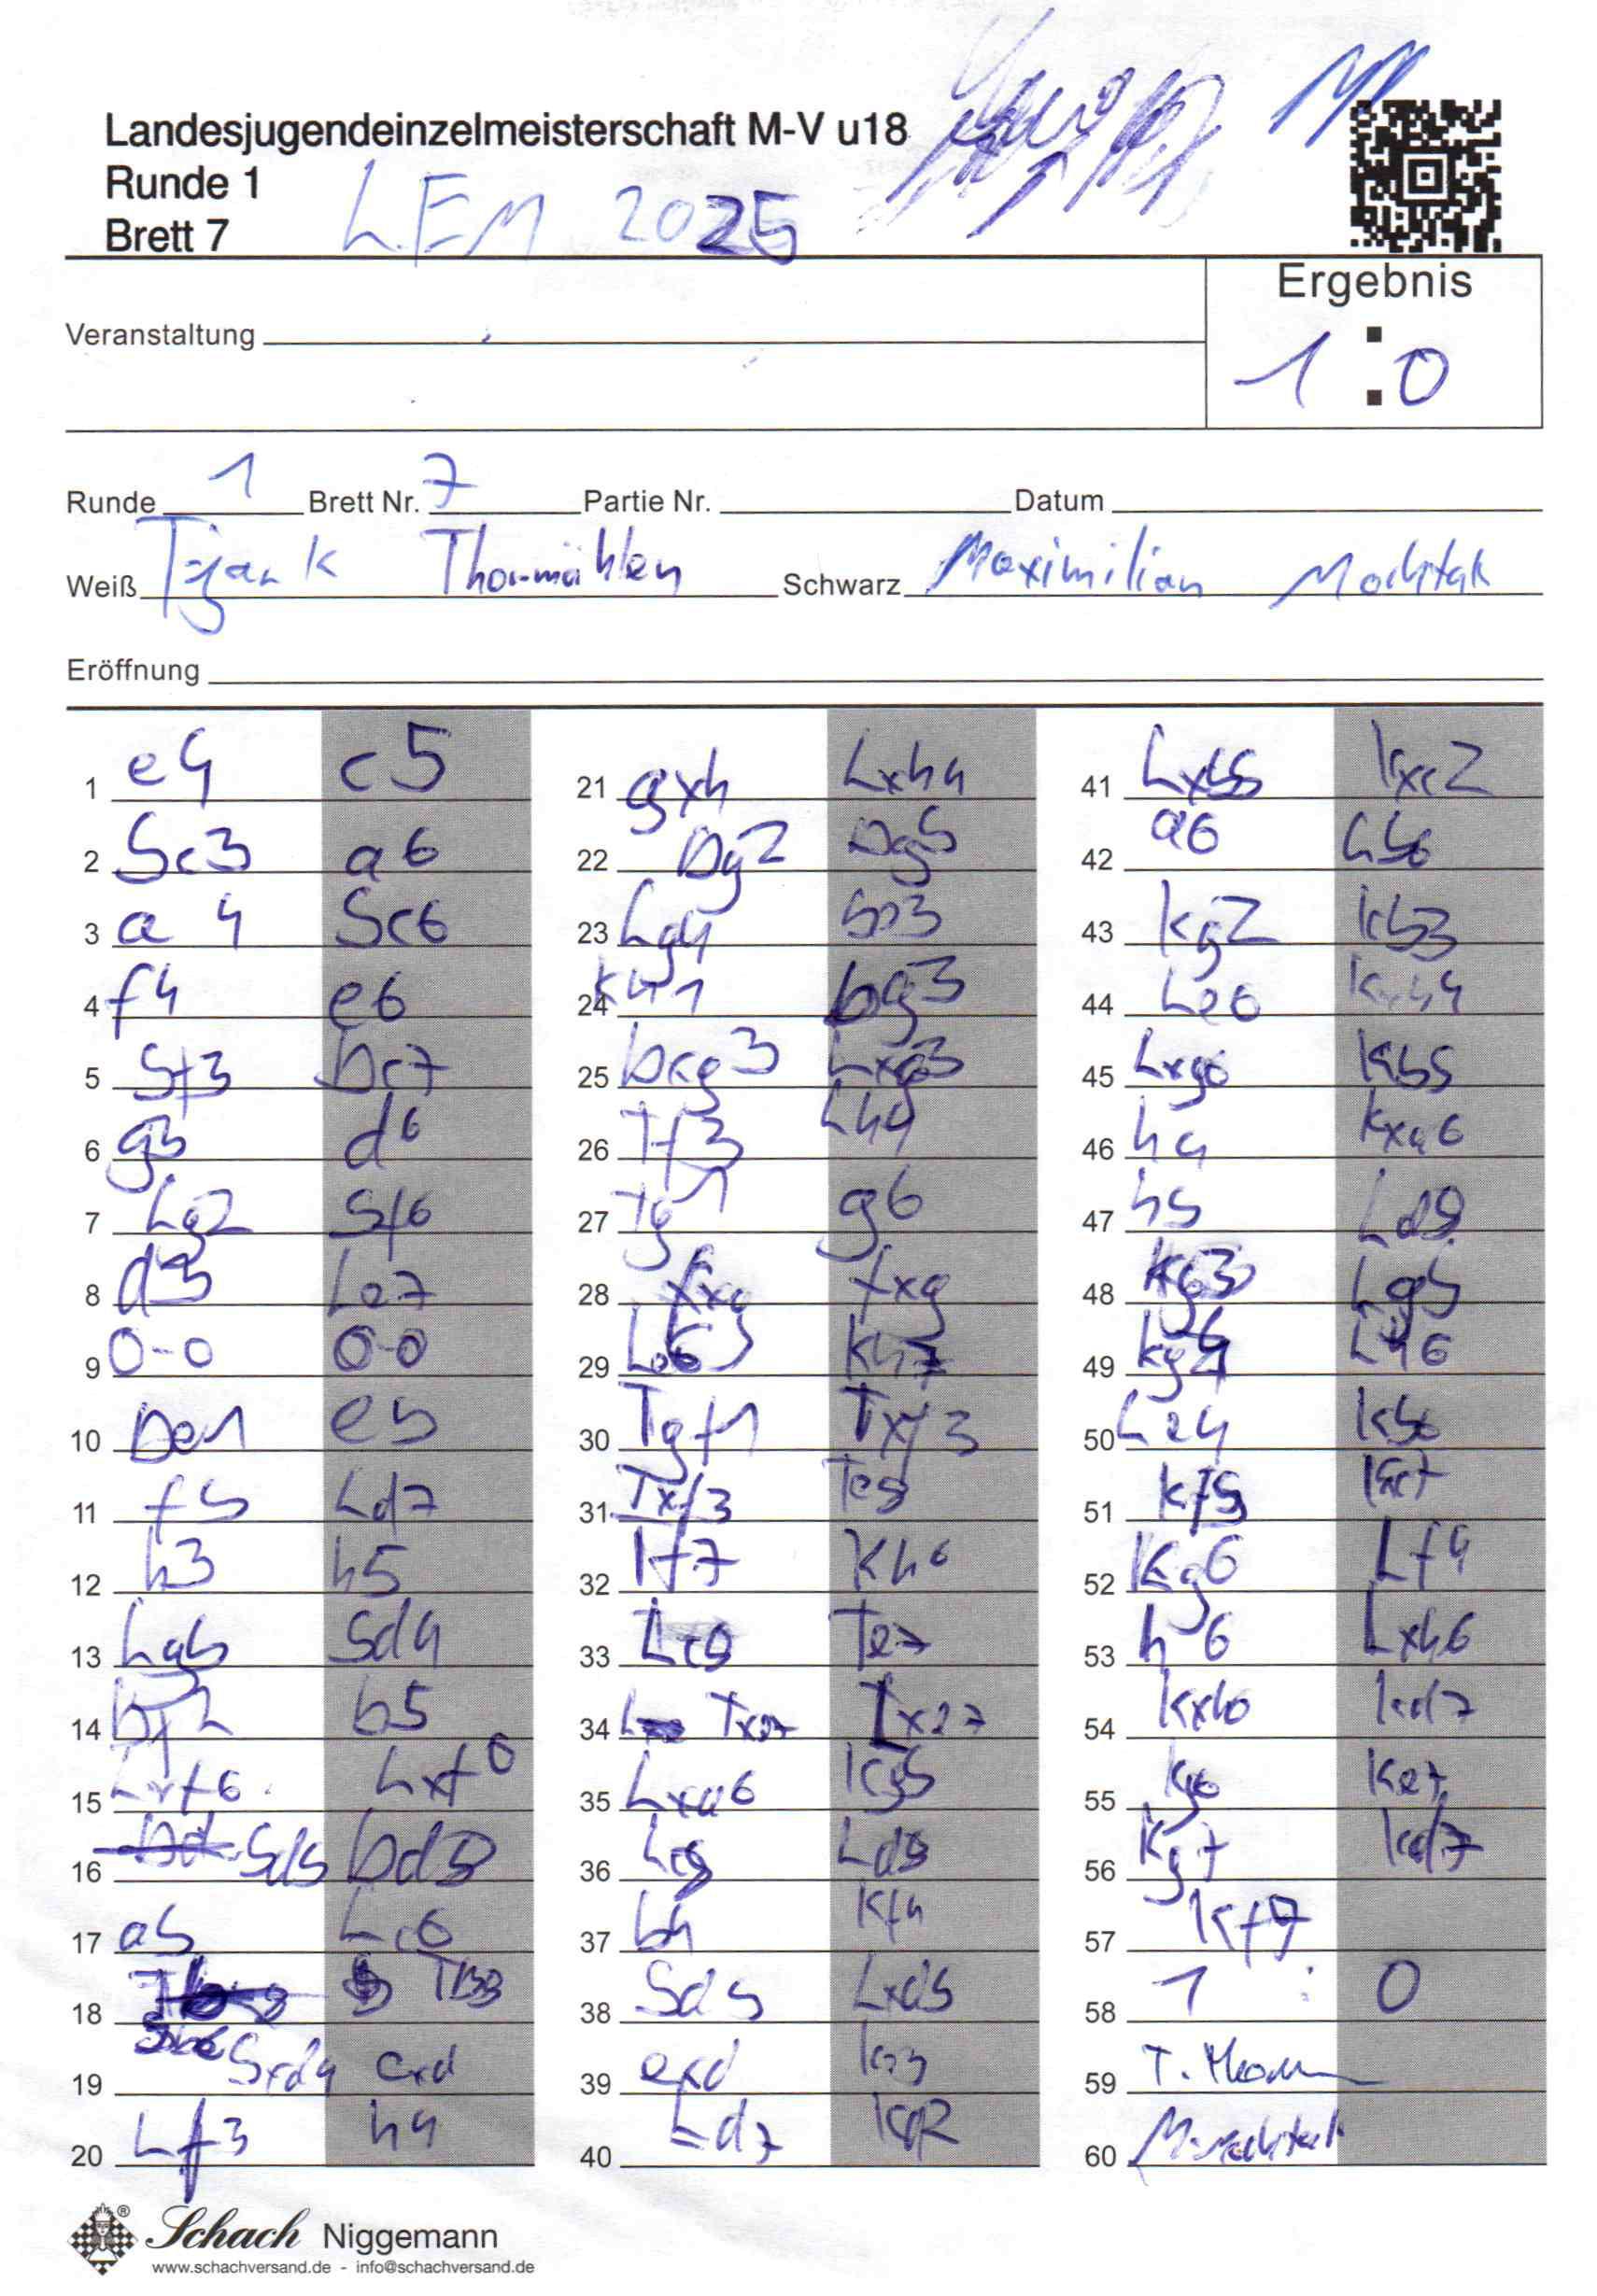 Landesjugendeinzelmeisterschaft M-V u18
Runde 1
Brett 7 LEM 2025
Ergebnis
Veranstaltung
1 : 0
Runde 1 Brett Nr. 7 Partie Nr. Datum
Weiß Tjark Thormählen Schwarz Maximilian Mochtak
Eröffnung
1 e4 c5
2 Sc3 a6
3 a4 Sc6
4 f4 e6
5 Sf3 Dc7
6 g3 d6
7 Lg2 Sf6
8 d3 Le7
9 0-0 0-0
10 De1 e5
11 f5 Ld7
12 h3 h5
13 Lg5 Sd4
14 Df2 b5
15 Lxf6 Lxf6
16 Sd5 Dd8
17 a5 Lc6
18 Tb8
19 Sxd4 cxd
20 Lf3 h4
21 gxh Lxh4
22 Dg2 Dg5
23 Lg4
24 Kh1 Dg3
25 Dxg3 Lxg3
26 Tf3 Lh4
27 Tg1 g6
28 fxg fxg
29 Kh7
30 Tgf1 Txf3
31 Txf3 Te8
32 Tf7 Kh6
33 Lc8 Te7
34 Txe7 Lxe7
35 Lxa6 Kg5
36 Lc8 Ld8
37 b4 Kf4
38 Sd5 Lxd5
39 exd Ke3
40 Ld7
41 Lxb5 Kxc2
42 a6 Lb6
43 Kg2 Kb3
44 Le8 Kxb4
45 Lxg6 Kb5
46 h4 Kxa6
47 h5 Ld8
48 Kg3 Lg5
49 Kg4 Lh6
50 Le4 Kb6
51 Kf5 Kc7
52 Kg6 Lf4
53 h6 Lxh6
54 Kxh6 Kd7
55 Kg6 Ke7
56 Kg7 Kd7
57 Kf7
58 1 : 0
59
60 M. Mochtak
Schach Niggemann
www.schachversand.de - info@schachversand.de